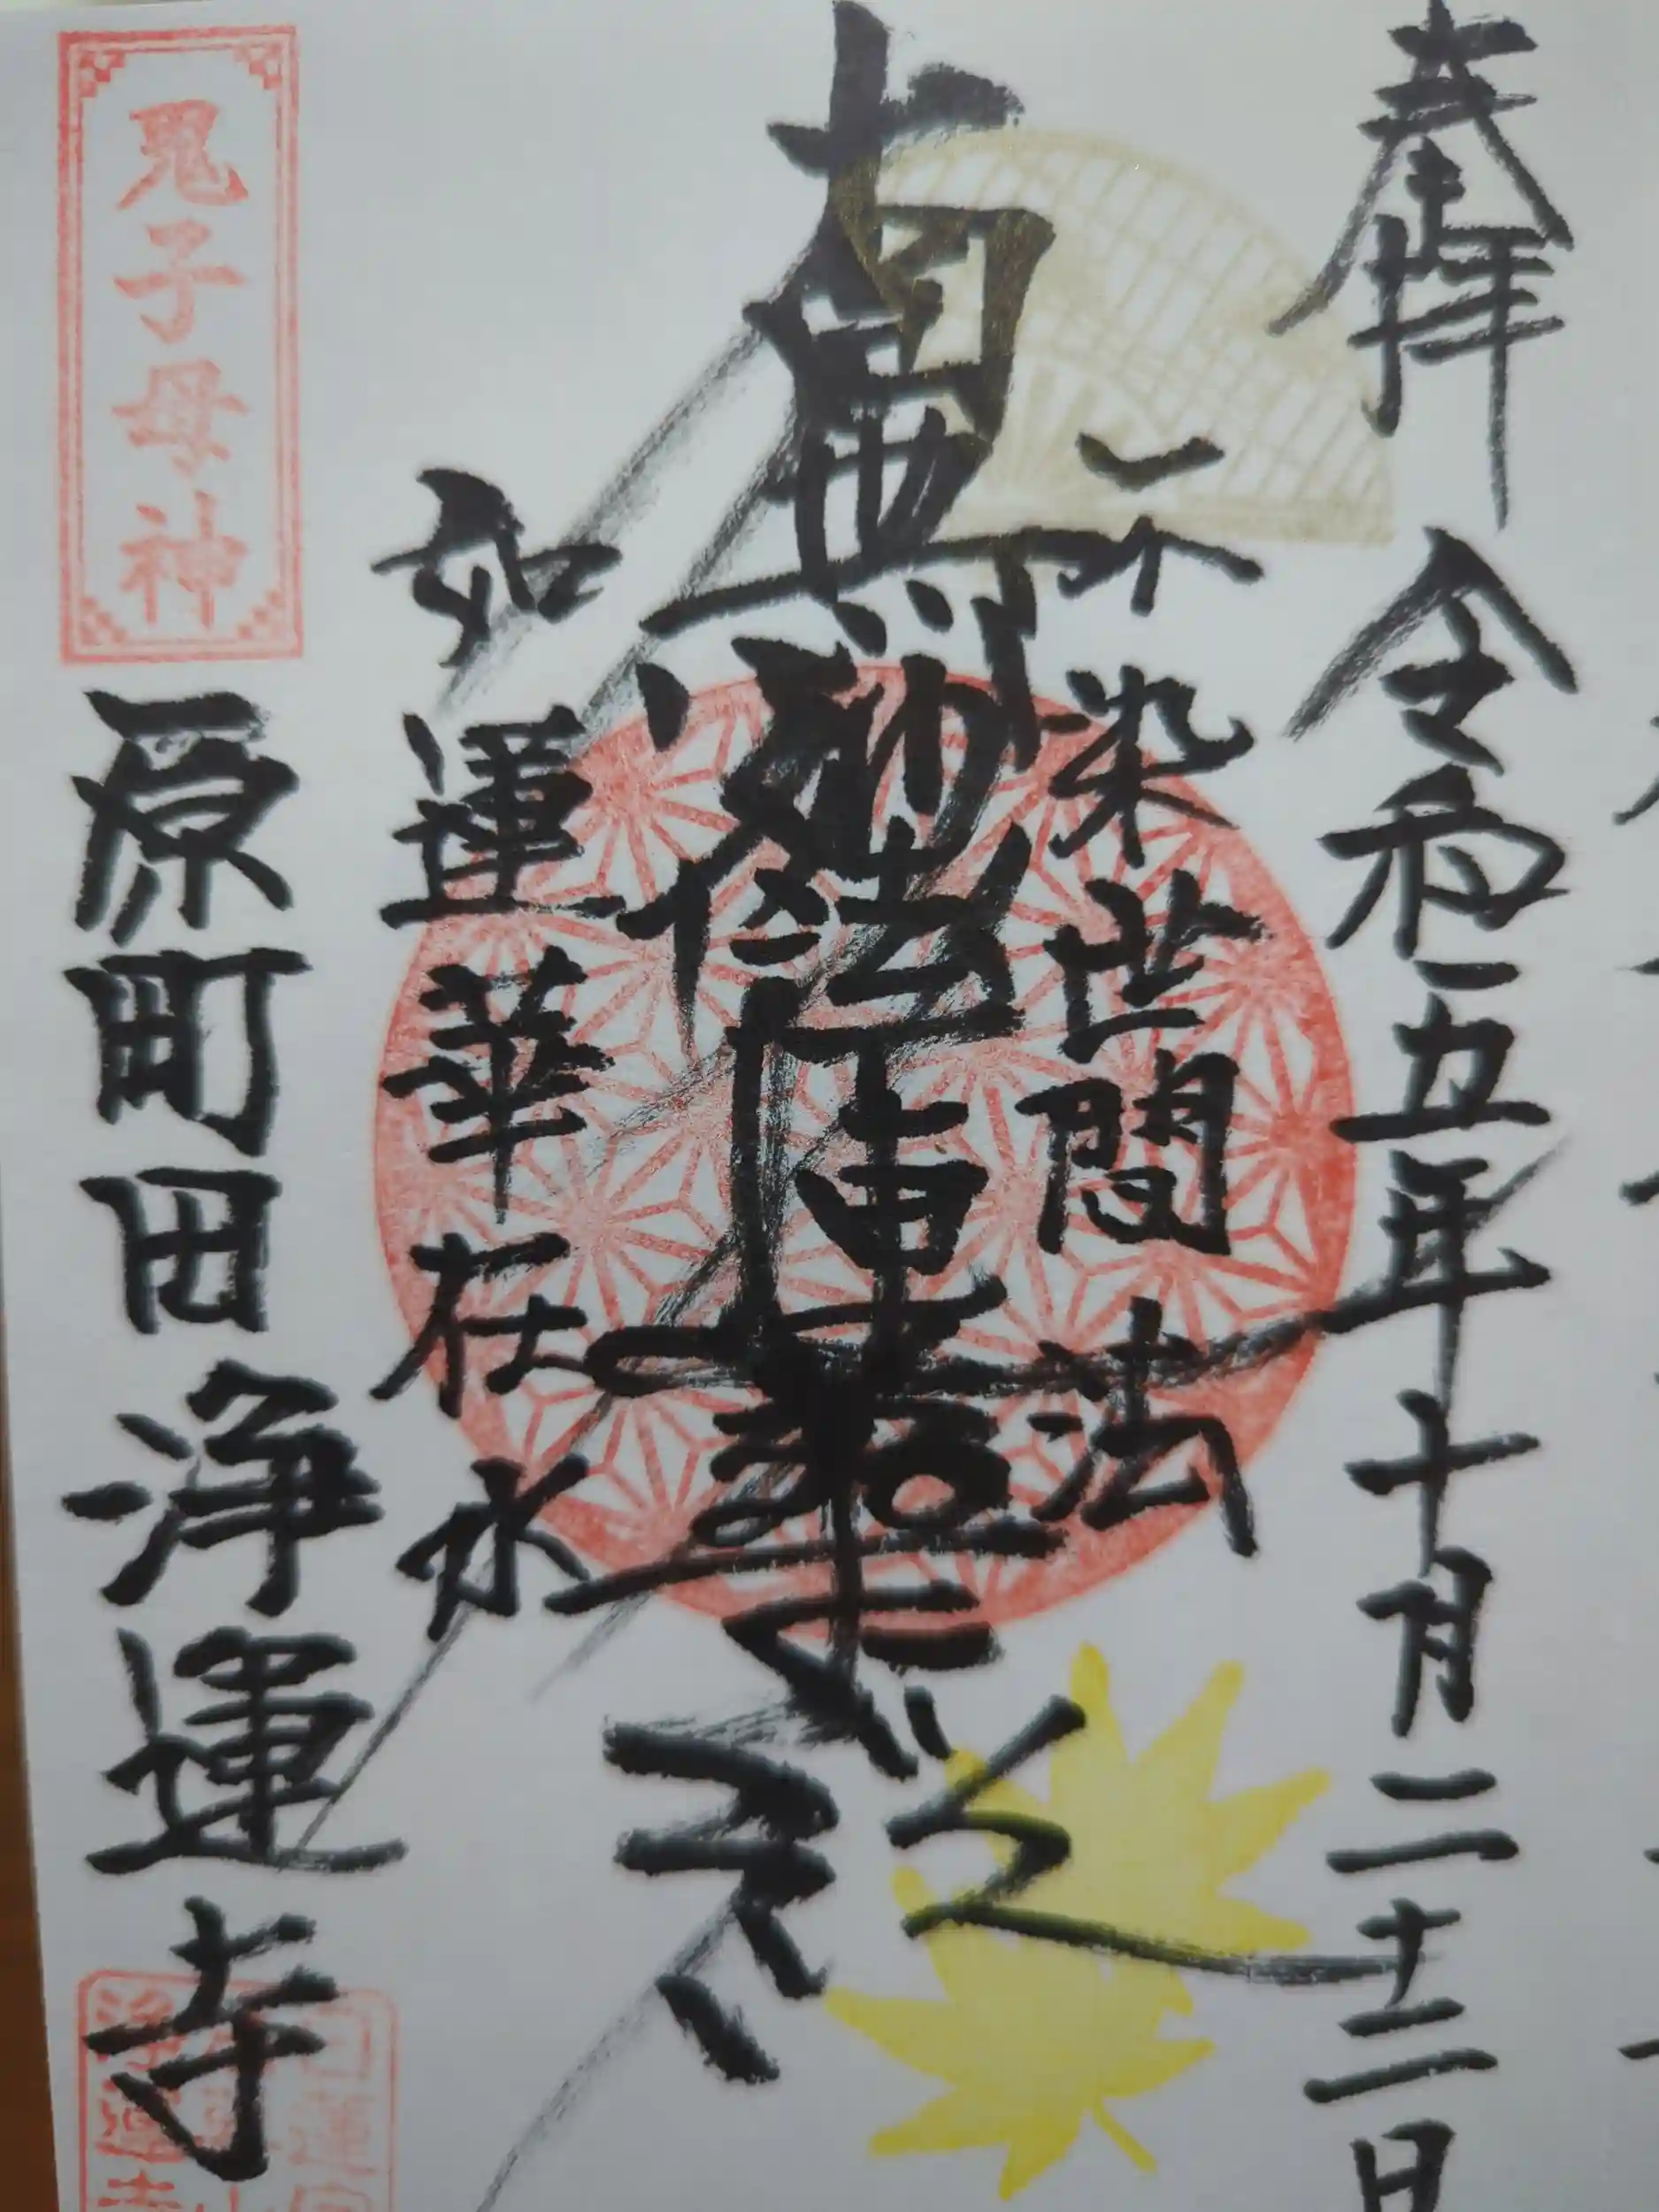 奉拝 令和五年十月二十二日
不染世間法
南無妙法蓮華経
如蓮華在水
鬼子母神
原町田 浄運寺